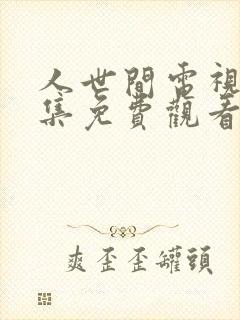 人世間電視
集免費觀看
爽歪歪罐頭